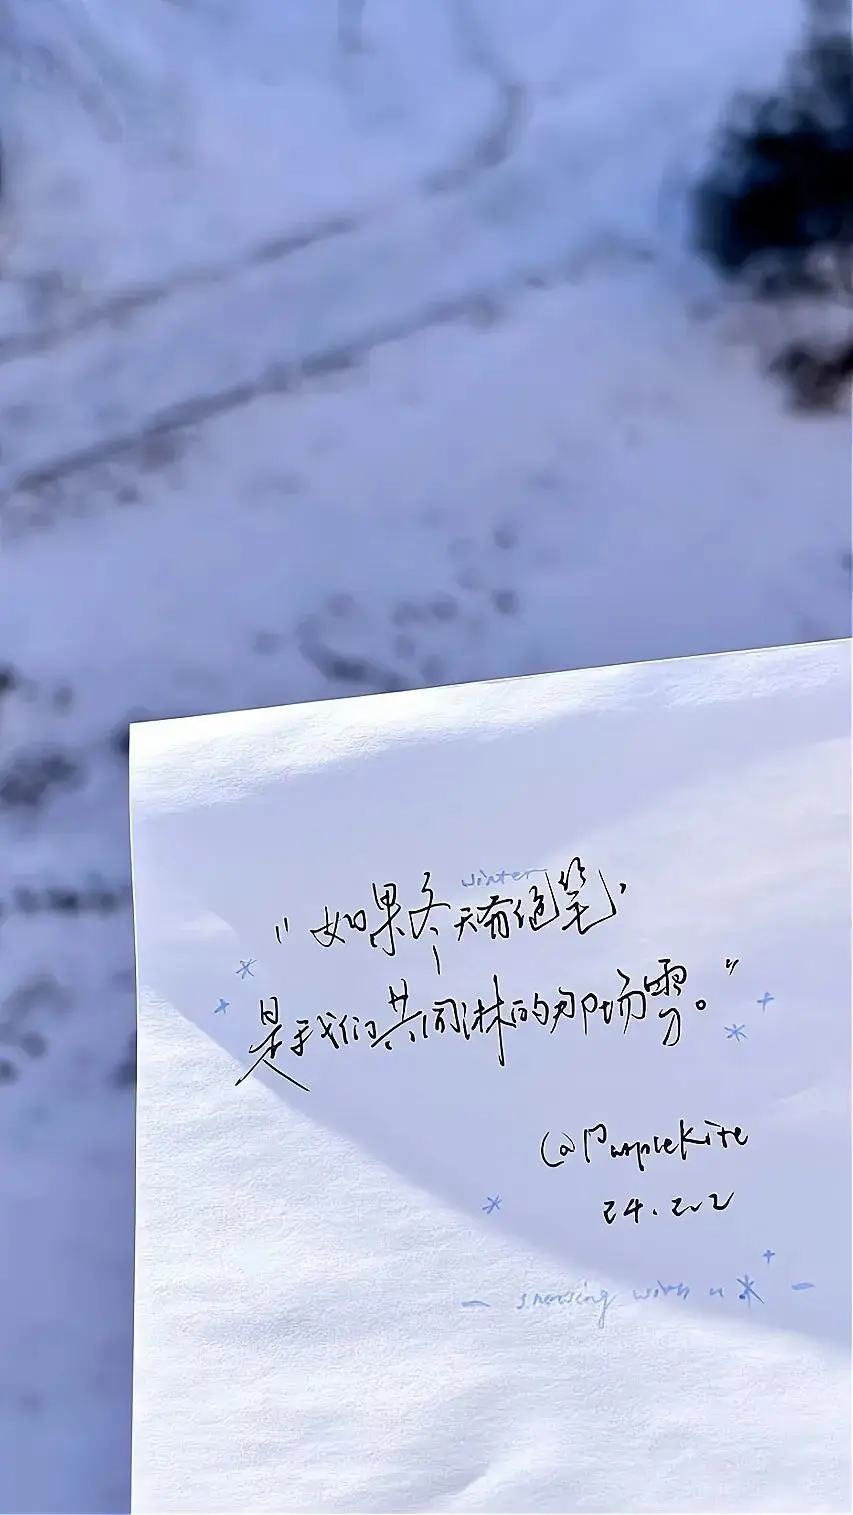 winter
“如果冬天有绝笔，
是于我们共同淋的那场雪。”
@PurpleKite
24.2.2
— snowing with u —